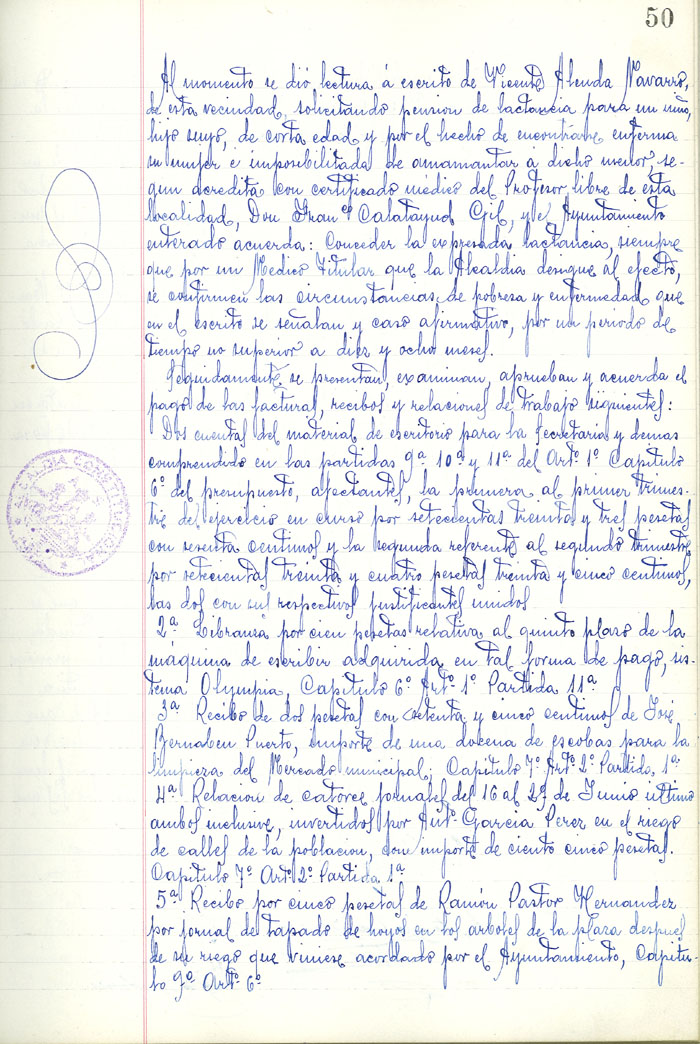 50
Al momento se dió lectura á escrito de Vicente Abenda Navarro,
de esta vecindad, solicitando pension de lactancia para un niño,
hijo suyo, de corta edad y por el hecho de encontrarse enferma
su mujer é imposibilitada de amamantar á dicho menor, se-
gun acredita con certificado médico del Profesor libre de esta
localidad, Don Franco Calatayud Gil, y el Ayuntamiento
enterado acuerda: Conceder la expresada lactancia, siempre
que por un Medico Titular que la Alcaldia designe al efecto,
se confirmen las circunstancias de pobreza y enfermedad que
en el escrito se señalan y caso afirmativo, por un periodo de
tiempo no superior a diez y ocho meses.
Seguidamente se presentan, examinan, aprueban y acuerda el
pago de las facturas, recibos y relaciones de trabajo siguientes:
Dos cuentas del material de escritorio para la Secretaria y demas
comprendido en las partidas 9ª 10ª y 11ª del Artº 1º Capitulo
6º del presupuesto, afectantes, la primera al primer trimes-
tre del ejercicio en curso por setecientas treinta y tres pesetas
con sesenta centimos y la segunda referente al segundo trimestre
por setecientas treinta y cuatro pesetas treinta y cinco centimos,
las dos con sus respectivos justificantes unidos
2ª Libranza por cien pesetas relativa al quinto plazo de la
máquina de escribir adquirida en tal forma de pago, sis-
tema Olympia, Capitulo 6º Artº 1º Partida 11ª
3ª Recibo de dos pesetas con setenta y cinco centimos de José
Bernabeu Puerto, importe de una docena de escobas para la
limpieza del Mercado municipal; Capitulo 7º Artº 2º Partida, 1ª
4ª Relacion de catorce jornales del 16 al 29 de Junio ultimo
ambos inclusive, invertidos por Antº Garcia Perez en el riego
de calles de la poblacion, con importe de ciento cinco pesetas.
Capitulo 7º Artº 2º Partida 1ª
5ª Recibo por cinco pesetas de Ramón Pastor Hernandez
por jornal de tapado de hoyos en los arboles de la plaza despues
de su riego que viniese acordado por el Ayuntamiento, Capitu-
lo 9º Artº 6º